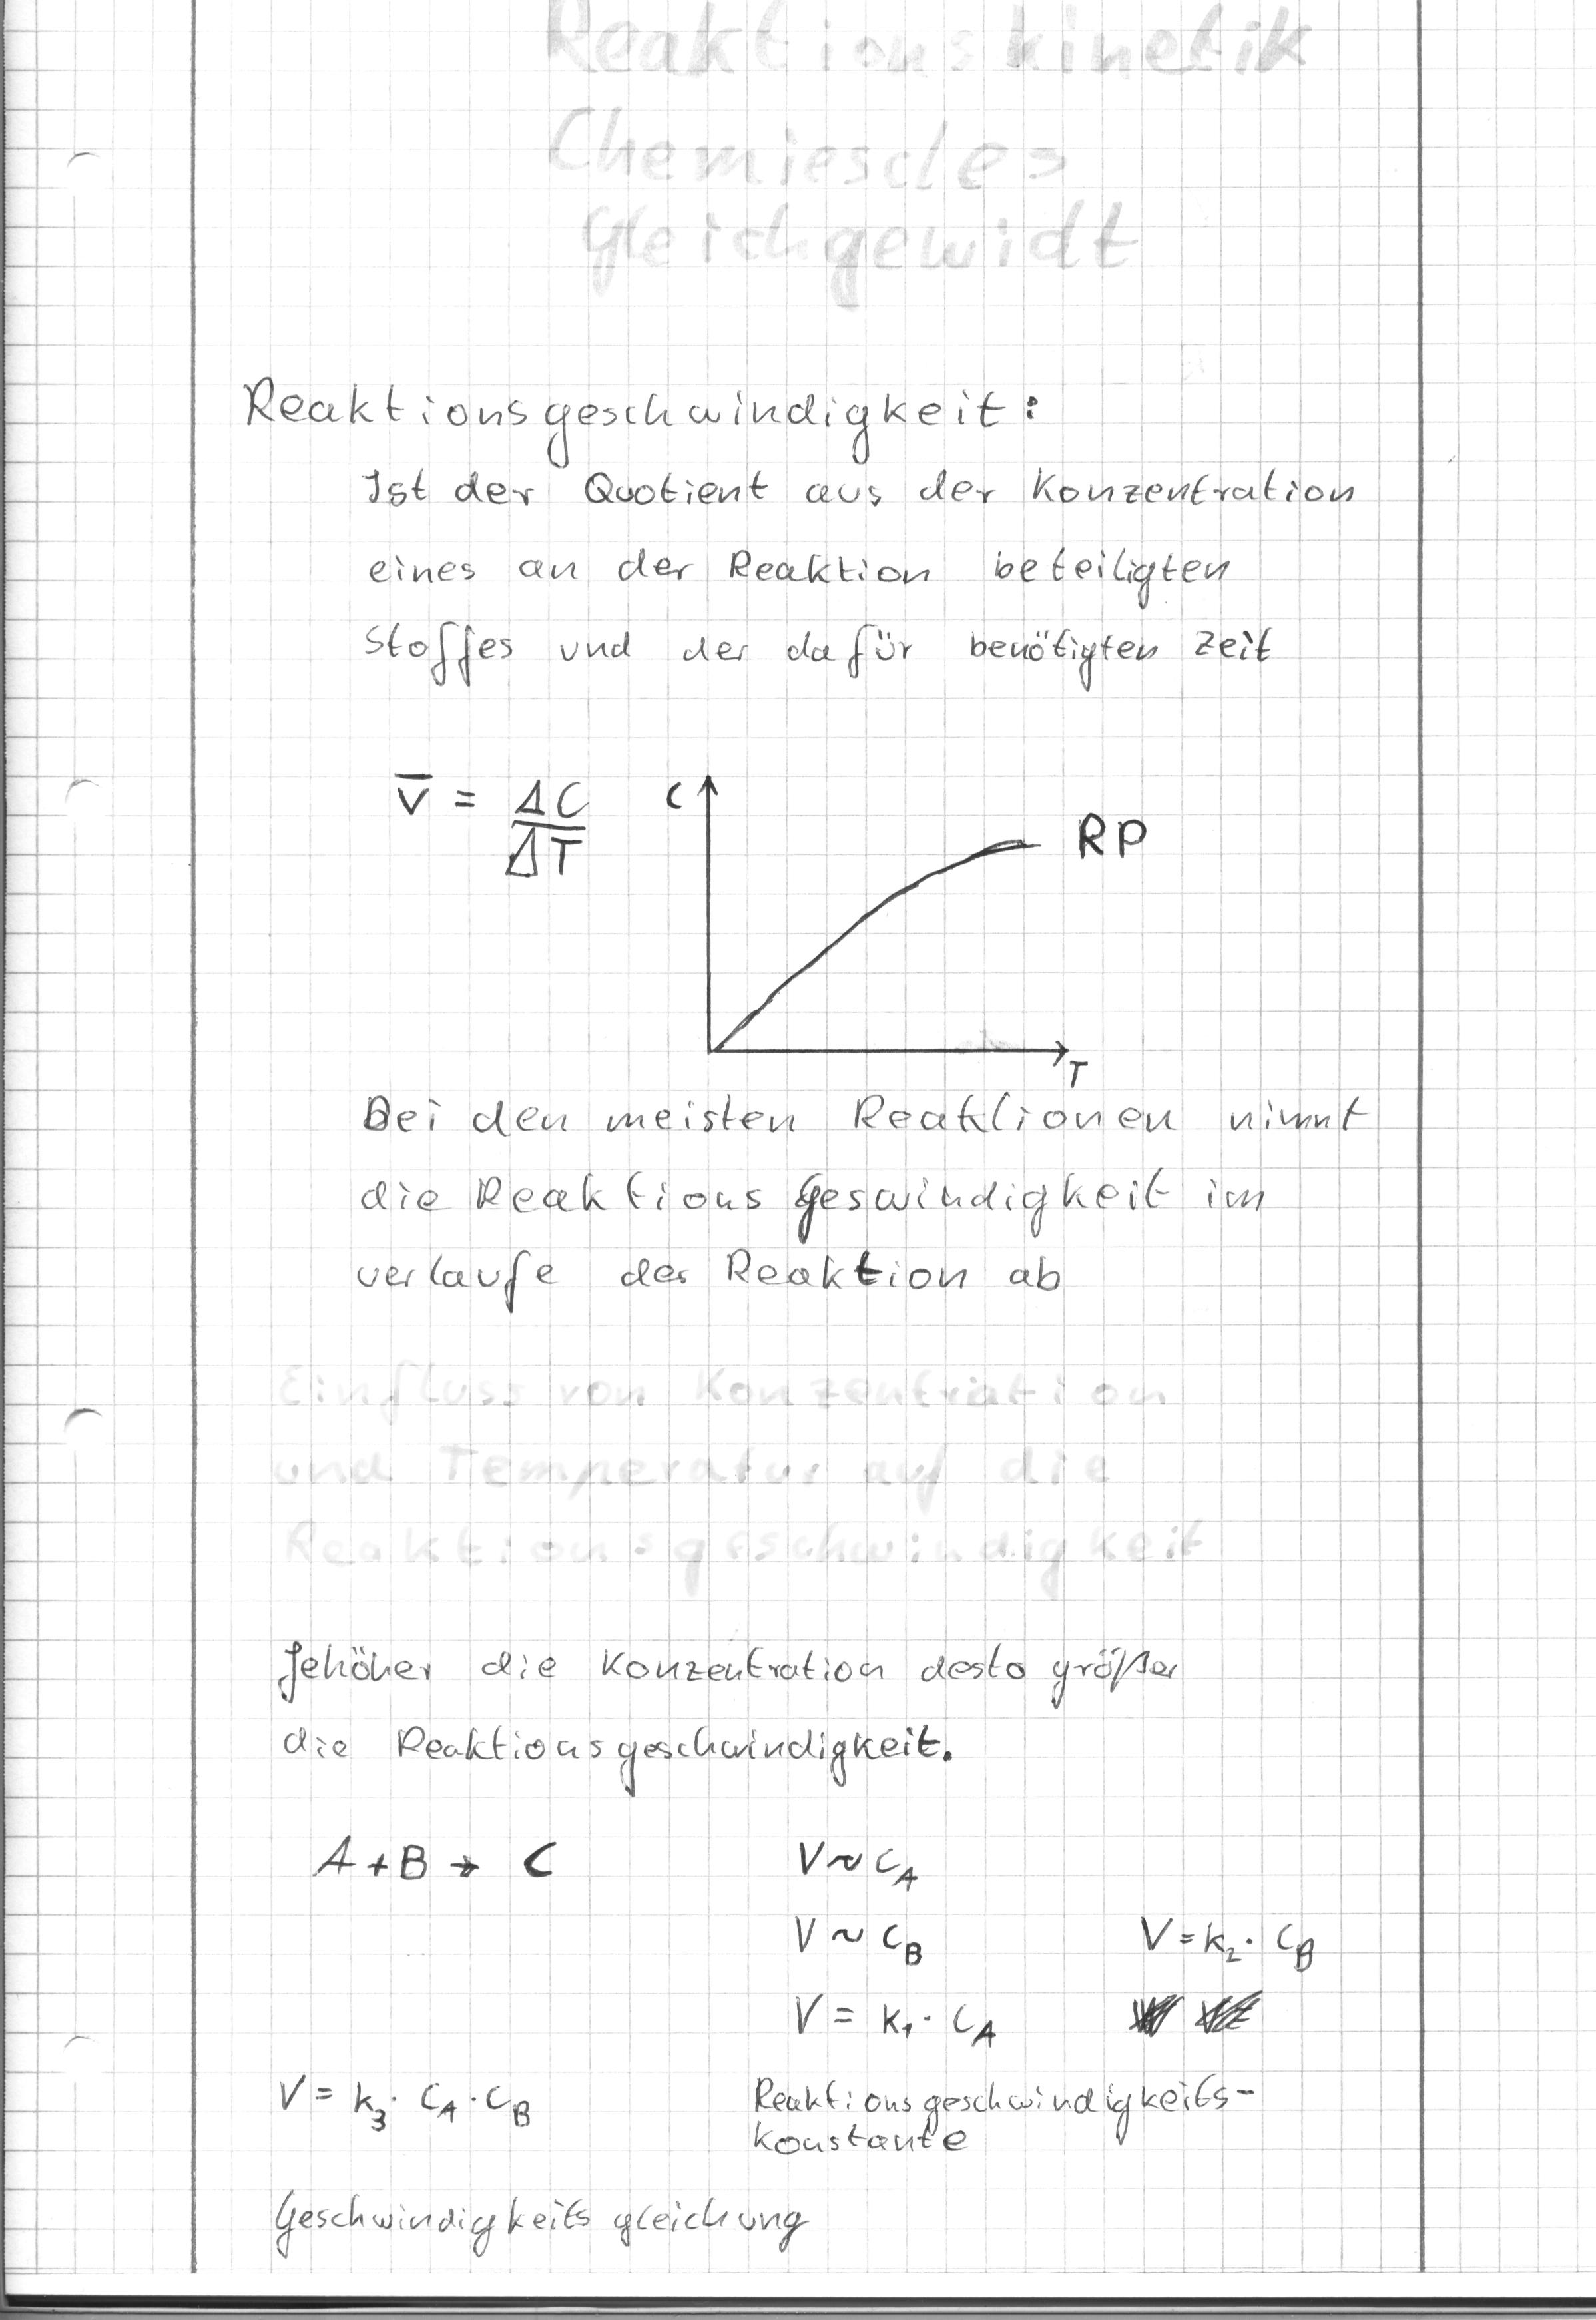 Reaktionskinetik
Chemiesches
Gleichgewicht
Reaktionsgeschwindigkeit:
Ist der Quotient aus der Konzentration
eines an der Reaktion beteiligten
Stoffes und der dafür benötigten Zeit
v̅ = ΔC/ΔT
C
RP
T
Bei den meisten Reaktionen nimmt
die Reaktions geswindigkeit im
verlaufe der Reaktion ab
Einfluss von Konzentration
und Temperatur auf die
Reaktionsgeschwindigkeit
Jehöher die Konzentration desto größer
die Reaktionsgeschwindigkeit.
A + B → C V ~ C_A
V ~ C_B V = k₂ · C_B
V = k₁ · C_A
V = k₃ · C_A · C_B Reaktionsgeschwindigkeits-
konstante
Geschwindigkeitsgleichung